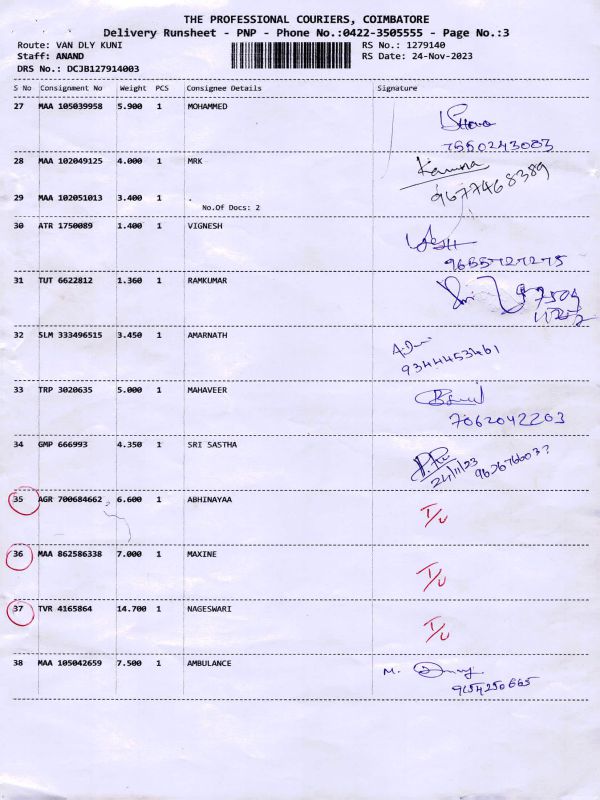 THE PROFESSIONAL COURIERS, COIMBATORE
Delivery Runsheet - PNP - Phone No.:0422-3505555 - Page No.:3
Route: VAN DLY KUNI RS No.: 1279140
Staff: ANAND RS Date: 24-Nov-2023
DRS No.: DCJB127914003
S No Consignment No Weight PCS Consignee Details Signature
27 MAA 105039958 5.900 1 MOHAMMED
7550243083
28 MAA 102049125 4.000 1 MRK
9677468389
29 MAA 102051013 3.400 1 .
No.Of Docs: 2
30 ATR 1750089 1.400 1 VIGNESH
9655727275
31 TUT 6622812 1.360 1 RAMKUMAR
32 SLM 333496515 3.450 1 AMARNATH
9344453461
33 TRP 3020635 5.000 1 MAHAVEER
7062042203
34 GMP 666993 4.350 1 SRI SASTHA
24/11/23
35 AGR 700684662 6.600 1 ABHINAYAA
I/U
36 MAA 862586338 7.000 1 MAXINE
I/U
37 TVR 4165864 14.700 1 NAGESWARI
I/U
38 MAA 105042659 7.500 1 AMBULANCE
M.